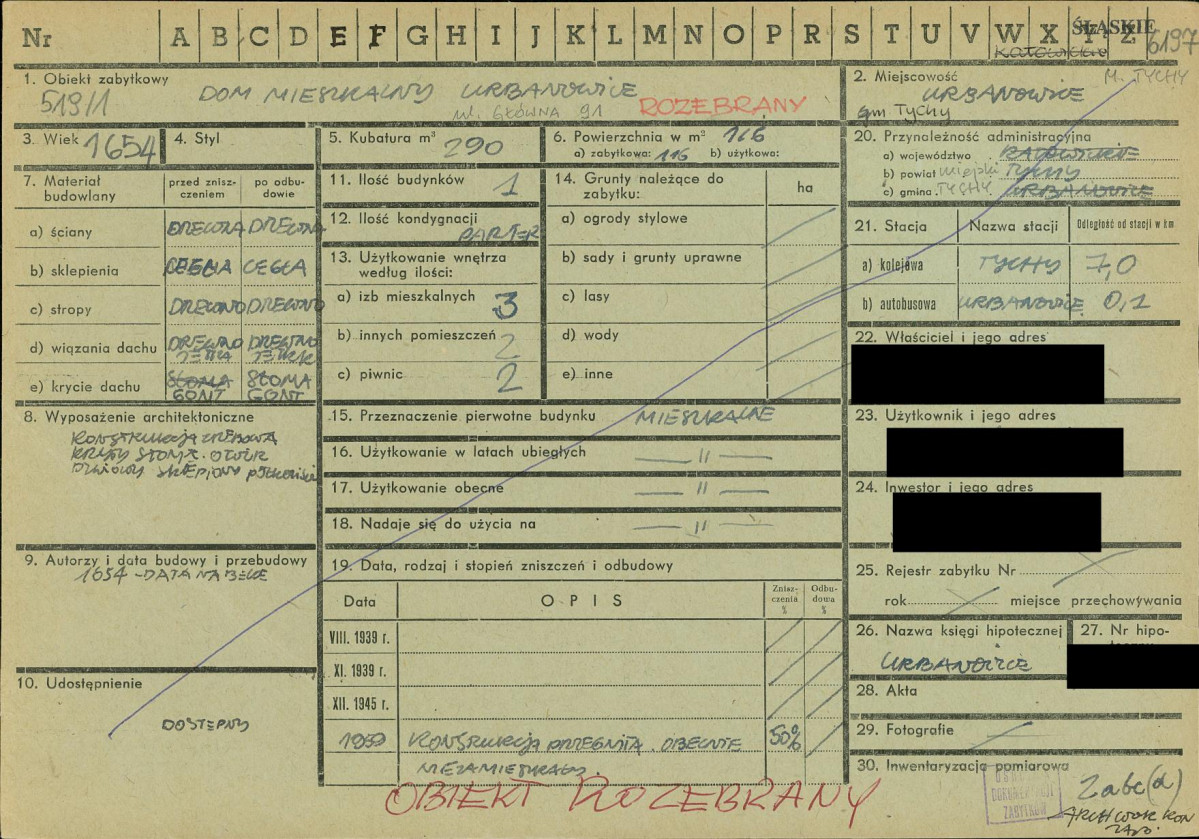 Nr A B C D E F G H I J K L M N O P R S T U V W X Y Z ŚLĄSKIE
KATOWICKIE 6197
1. Obiekt zabytkowy
519/1 DOM MIESZKALNY URBANOWICE
ul. GŁÓWNA 91 ROZEBRANY
2. Miejscowość M. TYCHY
URBANOWICE
gm TYCHY
3. Wiek 1654
4. Styl
5. Kubatura m³ 290
6. Powierzchnia w m² 116
a) zabytkowa: 116 b) użytkowa:
7. Materiał budowlany
przed znisz-
czeniem
po odbu-
dowie
a) ściany DREWNA DREWNA
b) sklepienia CEGŁA CEGŁA
c) stropy DREWNO DREWNO
d) wiązania dachu DREWNO DREWNO
e) krycie dachu SŁOMA SŁOMA
GONT GONT
8. Wyposażenie architektoniczne
KONSTRUKCJA ZRĘBOWA
KRYTY SŁOMĄ. OTWÓR
DRZWIOWY SKLEPIONY
9. Autorzy i data budowy i przebudowy
1654 - DATA NA BELCE
10. Udostępnienie
DOSTĘPNY
11. Ilość budynków 1
12. Ilość kondygnacji
PARTER
13. Użytkowanie wnętrza
według ilości:
a) izb mieszkalnych 3
b) innych pomieszczeń 2
c) piwnic 2
14. Grunty należące do
zabytku:
ha
a) ogrody stylowe
b) sady i grunty uprawne
c) lasy
d) wody
e) inne
15. Przeznaczenie pierwotne budynku MIESZKALNE
16. Użytkowanie w latach ubiegłych — II —
17. Użytkowanie obecne — II —
18. Nadaje się do użycia na — II —
19. Data, rodzaj i stopień zniszczeń i odbudowy
Data OPIS
Znisz-
czenia
%
Odbu-
dowa
%
VIII. 1939 r.
XI. 1939 r.
XII. 1945 r.
1959 KONSTRUKCJA PRZEGNIŁA. OBECNIE 50%
NIEZAMIESZKAŁY.
OBIEKT ROZEBRANY
20. Przynależność administracyjna
a) województwo KATOWICKIE
b) powiat miejski TYCHY
c) gmina TYCHY URBANOWICE
21. Stacja
Nazwa stacji
Odległość od stacji w km
a) kolejowa TYCHY 7,0
b) autobusowa URBANOWICE 0,1
22. Właściciel i jego adres
23. Użytkownik i jego adres
24. Inwestor i jego adres
25. Rejestr zabytku Nr
rok miejsce przechowywania
26. Nazwa księgi hipotecznej
URBANOWICE
27. Nr hipo-
28. Akta
29. Fotografie
30. Inwentaryzacja pomiarowa
DOKUMENTACJI
ZABYTKÓW
2abc(d)